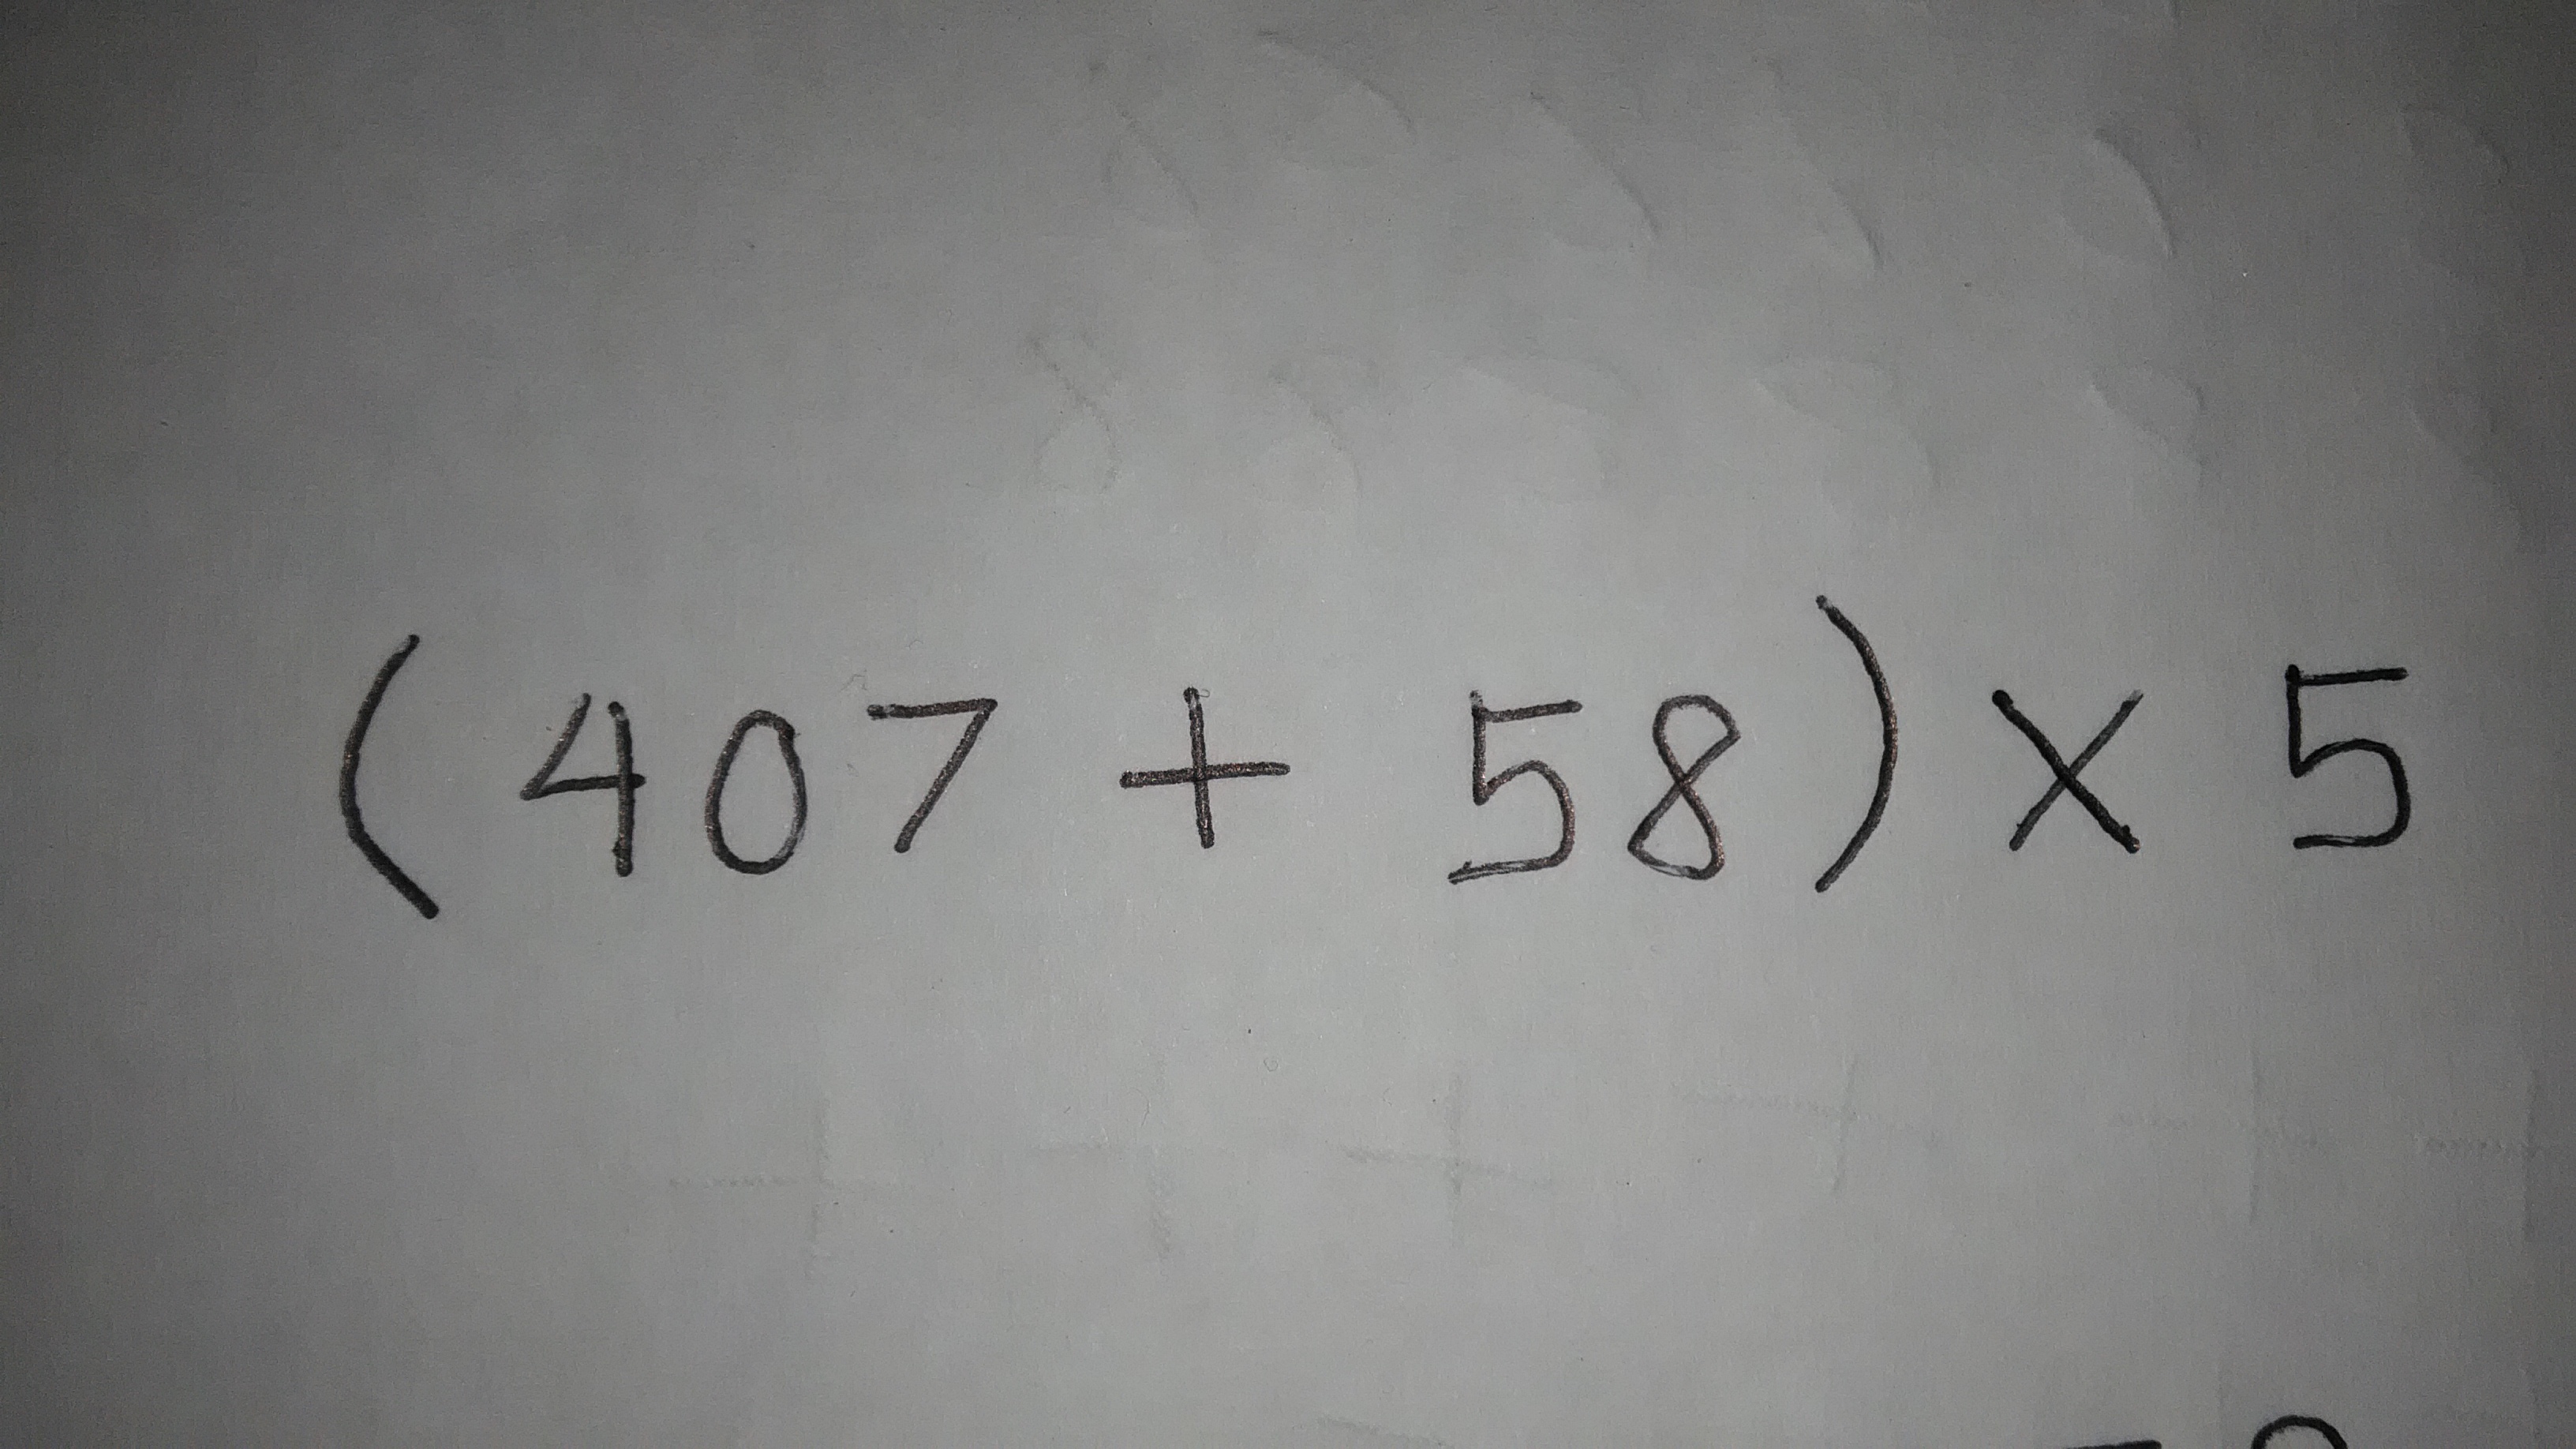 (407 + 58) × 5